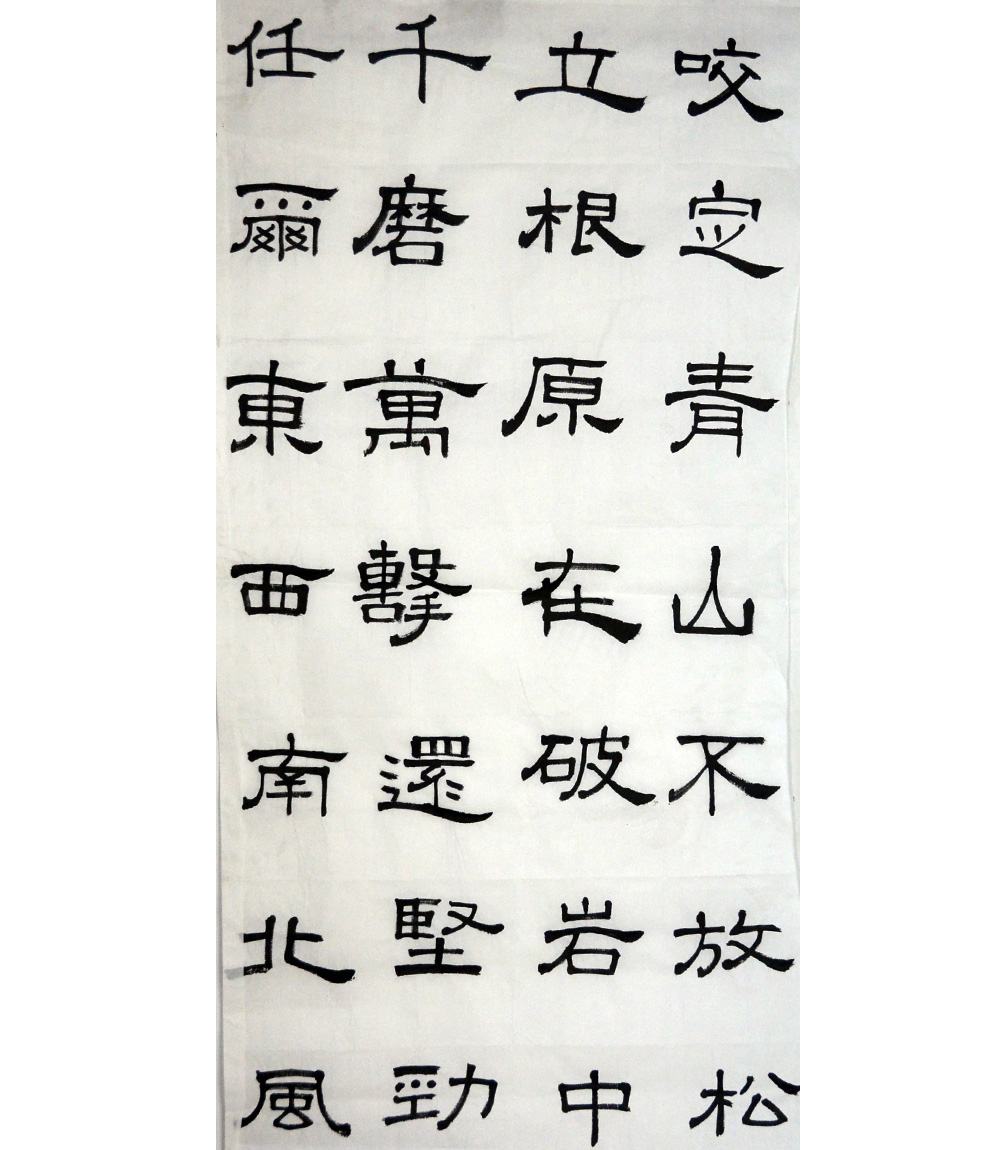 咬定青山不放松
立根原在破岩中
千磨萬擊還堅勁
任爾東西南北風